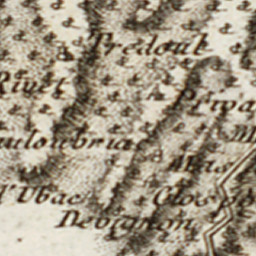 Tredoul
Rivet
Priva
ouloubriac
M
Mas
l'Ubac
Clos
Devignon